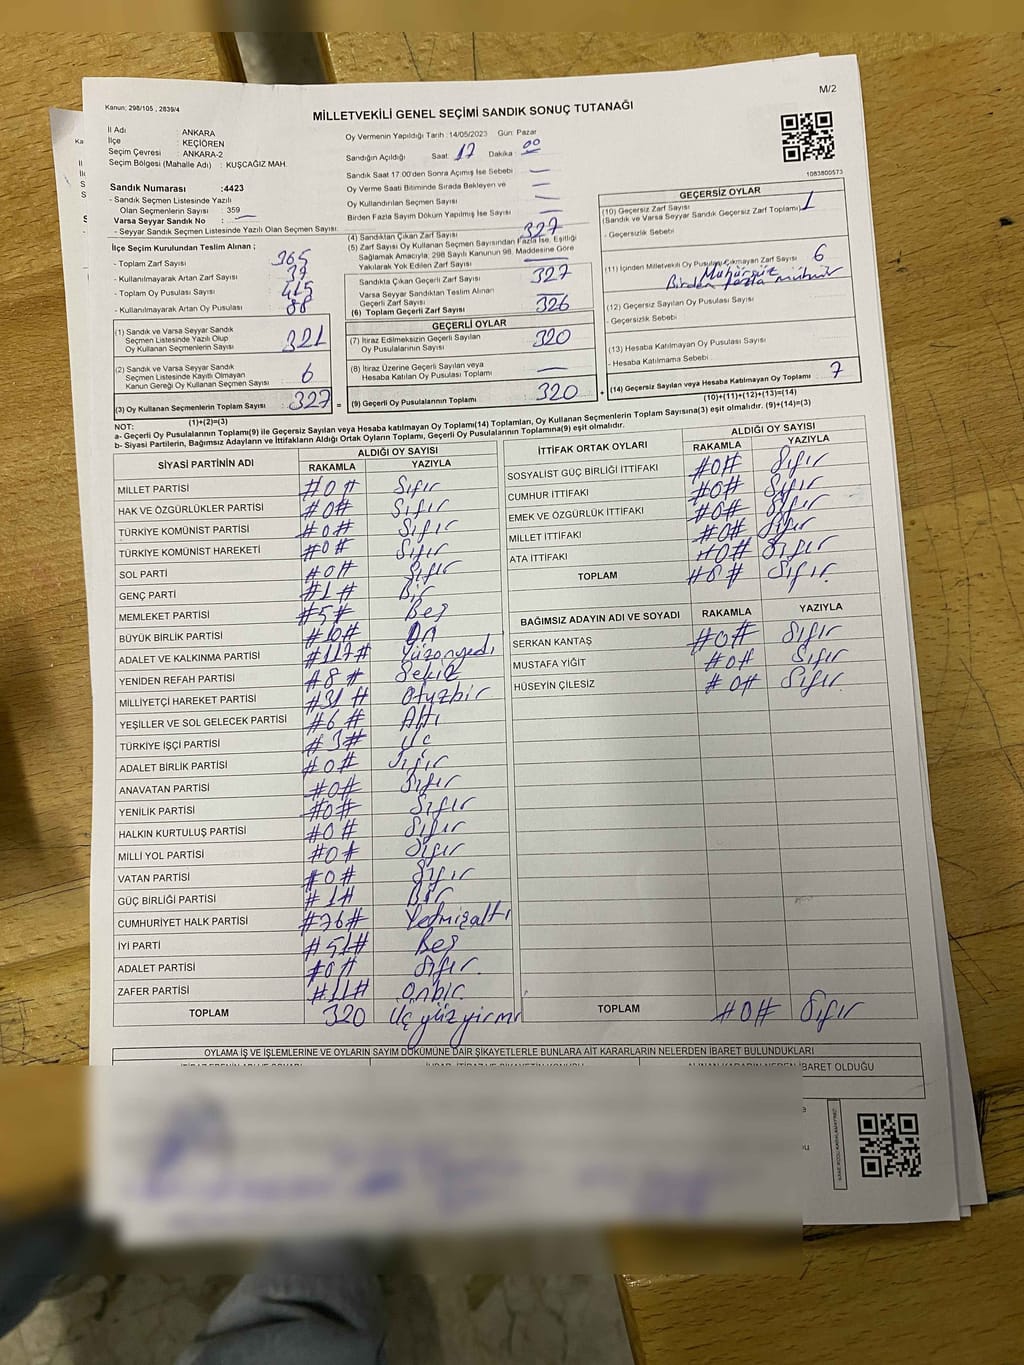 M/2
Kanun: 298/105 , 2839/4
MİLLETVEKİLİ GENEL SEÇİMİ SANDIK SONUÇ TUTANAĞI
İl Adı : ANKARA
İlçe : KEÇİÖREN
Seçim Çevresi : ANKARA-2
Seçim Bölgesi (Mahalle Adı) : KUŞCAĞIZ MAH.
Sandık Numarası : 4423
- Sandık Seçmen Listesinde Yazılı
Olan Seçmenlerin Sayısı : 359
Varsa Seyyar Sandık No : —
- Seyyar Sandık Seçmen Listesinde Yazılı Olan Seçmen Sayısı
Oy Vermenin Yapıldığı Tarih : 14/05/2023 Gün: Pazar
Sandığın Açıldığı Saat: 17 Dakika : 00
Sandık Saat 17:00'den Sonra Açımış İse Sebebi —
Oy Verme Saati Bitiminde Sırada Bekleyen ve —
Oy Kullandırılan Seçmen Sayısı —
Birden Fazla Sayım Döküm Yapılmış İse Sayısı —
1083800573
İlçe Seçim Kurulundan Teslim Alınan ;
- Toplam Zarf Sayısı : 365
- Kullanılmayarak Artan Zarf Sayısı :
- Toplam Oy Pusulası Sayısı : 415
- Kullanılmayarak Artan Oy Pusulası : 88
(1) Sandık ve Varsa Seyyar Sandık
Seçmen Listesinde Yazılı Olup
Oy Kullanan Seçmenlerin Sayısı 321
(2) Sandık ve Varsa Seyyar Sandık
Seçmen Listesinde Kayıtlı Olmayan
Kanun Gereği Oy Kullanan Seçmen Sayısı 6
(3) Oy Kullanan Seçmenlerin Toplam Sayısı 327
(1)+(2)=(3)
(4) Sandıktan Çıkan Zarf Sayısı 327
(5) Zarf Sayısı Oy Kullanan Seçmen Sayısından Fazla İse, Eşitliği
Sağlamak Amacıyla; 298 Sayılı Kanunun 98. Maddesine Göre
Yakılarak Yok Edilen Zarf Sayısı —
Sandıkta Çıkan Geçerli Zarf Sayısı 327
Varsa Seyyar Sandıktan Teslim Alınan
Geçerli Zarf Sayısı —
(6) Toplam Geçerli Zarf Sayısı 326
GEÇERLİ OYLAR
(7) İtiraz Edilmeksizin Geçerli Sayılan
Oy Pusulalarının Sayısı 320
(8) İtiraz Üzerine Geçerli Sayılan veya
Hesaba Katılan Oy Pusulası Toplamı —
= (9) Geçerli Oy Pusulalarının Toplamı 320
GEÇERSİZ OYLAR
(10) Geçersiz Zarf Sayısı 1
(Sandık ve Varsa Seyyar Sandık Geçersiz Zarf Toplamı)
- Geçersizlik Sebebi
(11) İçinden Milletvekili Oy Pusulası Çıkmayan Zarf Sayısı 6
Mühürsüz
Birden fazla mühür
(12) Geçersiz Sayılan Oy Pusulası Sayısı
- Geçersizlik Sebebi :
(13) Hesaba Katılmayan Oy Pusulası Sayısı
- Hesaba Katılmama Sebebi :
+ (14) Geçersiz Sayılan veya Hesaba Katılmayan Oy Toplamı 7
(10)+(11)+(12)+(13)=(14)
NOT:
a- Geçerli Oy Pusulalarının Toplamı(9) ile Geçersiz Sayılan veya Hesaba Katılmayan Oy Toplamı(14) Toplamları, Oy Kullanan Seçmenlerin Toplam Sayısına(3) eşit olmalıdır. (9)+(14)=(3)
b- Siyasi Partilerin, Bağımsız Adayların ve İttifakların Aldığı Ortak Oyların Toplamı, Geçerli Oy Pusulalarının Toplamına(9) eşit olmalıdır.
SİYASİ PARTİNİN ADI ALDIĞI OY SAYISI
RAKAMLA YAZIYLA
MİLLET PARTİSİ #0# Sıfır
HAK VE ÖZGÜRLÜKLER PARTİSİ #0# Sıfır
TÜRKİYE KOMÜNİST PARTİSİ #0# Sıfır
TÜRKİYE KOMÜNİST HAREKETİ #0# Sıfır
SOL PARTİ #0# Sıfır
GENÇ PARTİ #1# Bir
MEMLEKET PARTİSİ #5# Beş
BÜYÜK BİRLİK PARTİSİ #10# On
ADALET VE KALKINMA PARTİSİ #117# Yüzonyedi
YENİDEN REFAH PARTİSİ #8# Sekiz
MİLLİYETÇİ HAREKET PARTİSİ #31# Otuzbir
YEŞİLLER VE SOL GELECEK PARTİSİ #6# Altı
TÜRKİYE İŞÇİ PARTİSİ #3# Üç
ADALET BİRLİK PARTİSİ #0# Sıfır
ANAVATAN PARTİSİ #0# Sıfır
YENİLİK PARTİSİ #0# Sıfır
HALKIN KURTULUŞ PARTİSİ #0# Sıfır
MİLLİ YOL PARTİSİ #0# Sıfır
VATAN PARTİSİ #0# Sıfır
GÜÇ BİRLİĞİ PARTİSİ #1# Bir
CUMHURİYET HALK PARTİSİ #76# Yetmişaltı
İYİ PARTİ #51# Beş
ADALET PARTİSİ #0# Sıfır
ZAFER PARTİSİ #11# Onbir
TOPLAM 320 Üçyüzyirmi
İTTİFAK ORTAK OYLARI ALDIĞI OY SAYISI
RAKAMLA YAZIYLA
SOSYALİST GÜÇ BİRLİĞİ İTTİFAKI #0# Sıfır
CUMHUR İTTİFAKI #0# Sıfır
EMEK VE ÖZGÜRLÜK İTTİFAKI #0# Sıfır
MİLLET İTTİFAKI #0# Sıfır
ATA İTTİFAKI #0# Sıfır
TOPLAM #0# Sıfır
BAĞIMSIZ ADAYIN ADI VE SOYADI RAKAMLA YAZIYLA
SERKAN KANTAŞ #0# Sıfır
MUSTAFA YİĞİT #0# Sıfır
HÜSEYİN ÇİLESİZ #0# Sıfır
TOPLAM #0# Sıfır
OYLAMA İŞ VE İŞLEMLERİNE VE OYLARIN SAYIM DÖKÜMÜNE DAİR ŞİKAYETLERLE BUNLARA AİT KARARLARIN NELERDEN İBARET BULUNDUKLARI
ALINAN KARARIN NEDEN İBARET OLDUĞU